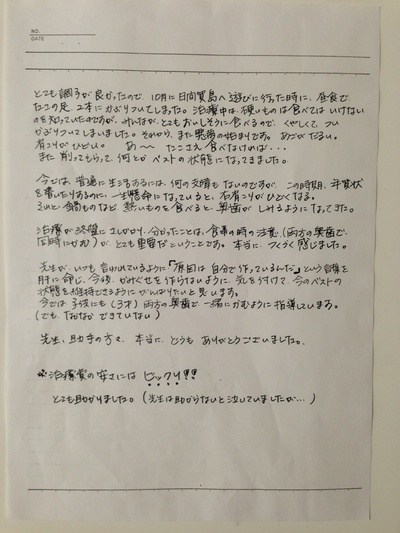 NO.
DATE
とても調子が良かったので、10月に日間賀島へ遊びに行った時に、昼食で
たこの足、2本にかぶりついてしまった。治療中は、硬いものは食べてはいけない
のを知っていたのですが、みんなが、とてもおいしそうに食べるので、くやしくて、つい
かぶりついてしまいました。それから、また悪夢の始まりです。あごがだるい。
肩こりがひどい。 あ〜 たこさえ食べなければ・・・
また削ってもらって、何とかベストの状態になってきました。
今では、普通に生活するには、何の支障もないのですが、この時期、年賀状
を書いたりするのに、一生懸命になっていると、右肩こりがひどくなる。
それと鍋ものなど、熱いものを食べると、奥歯がしみるようになってきた。
治療が終盤にさしかかり、分かったことは、食事の時の注意(両方の奥歯で、
同時にかむ)が、とても重要だということです。本当に、つくづく感じました。
先生が、いつも言われているように「原因は自分で作っているんだ」という言葉を
肝に命じ、今後、かみぐせを作らないように、気を付けて、今のベストの
状態を維持できるようにがんばりたいと思います。
今では、子供にも(3才)両方の奥歯で一緒にかむように指導しています。
(でも、なかなかできていない)
先生、助手の方々、本当に、どうもありがとうございました。
※治療費の安さには ビックリ!!
とても助かりました。(先生は助からないと泣いていましたが…)